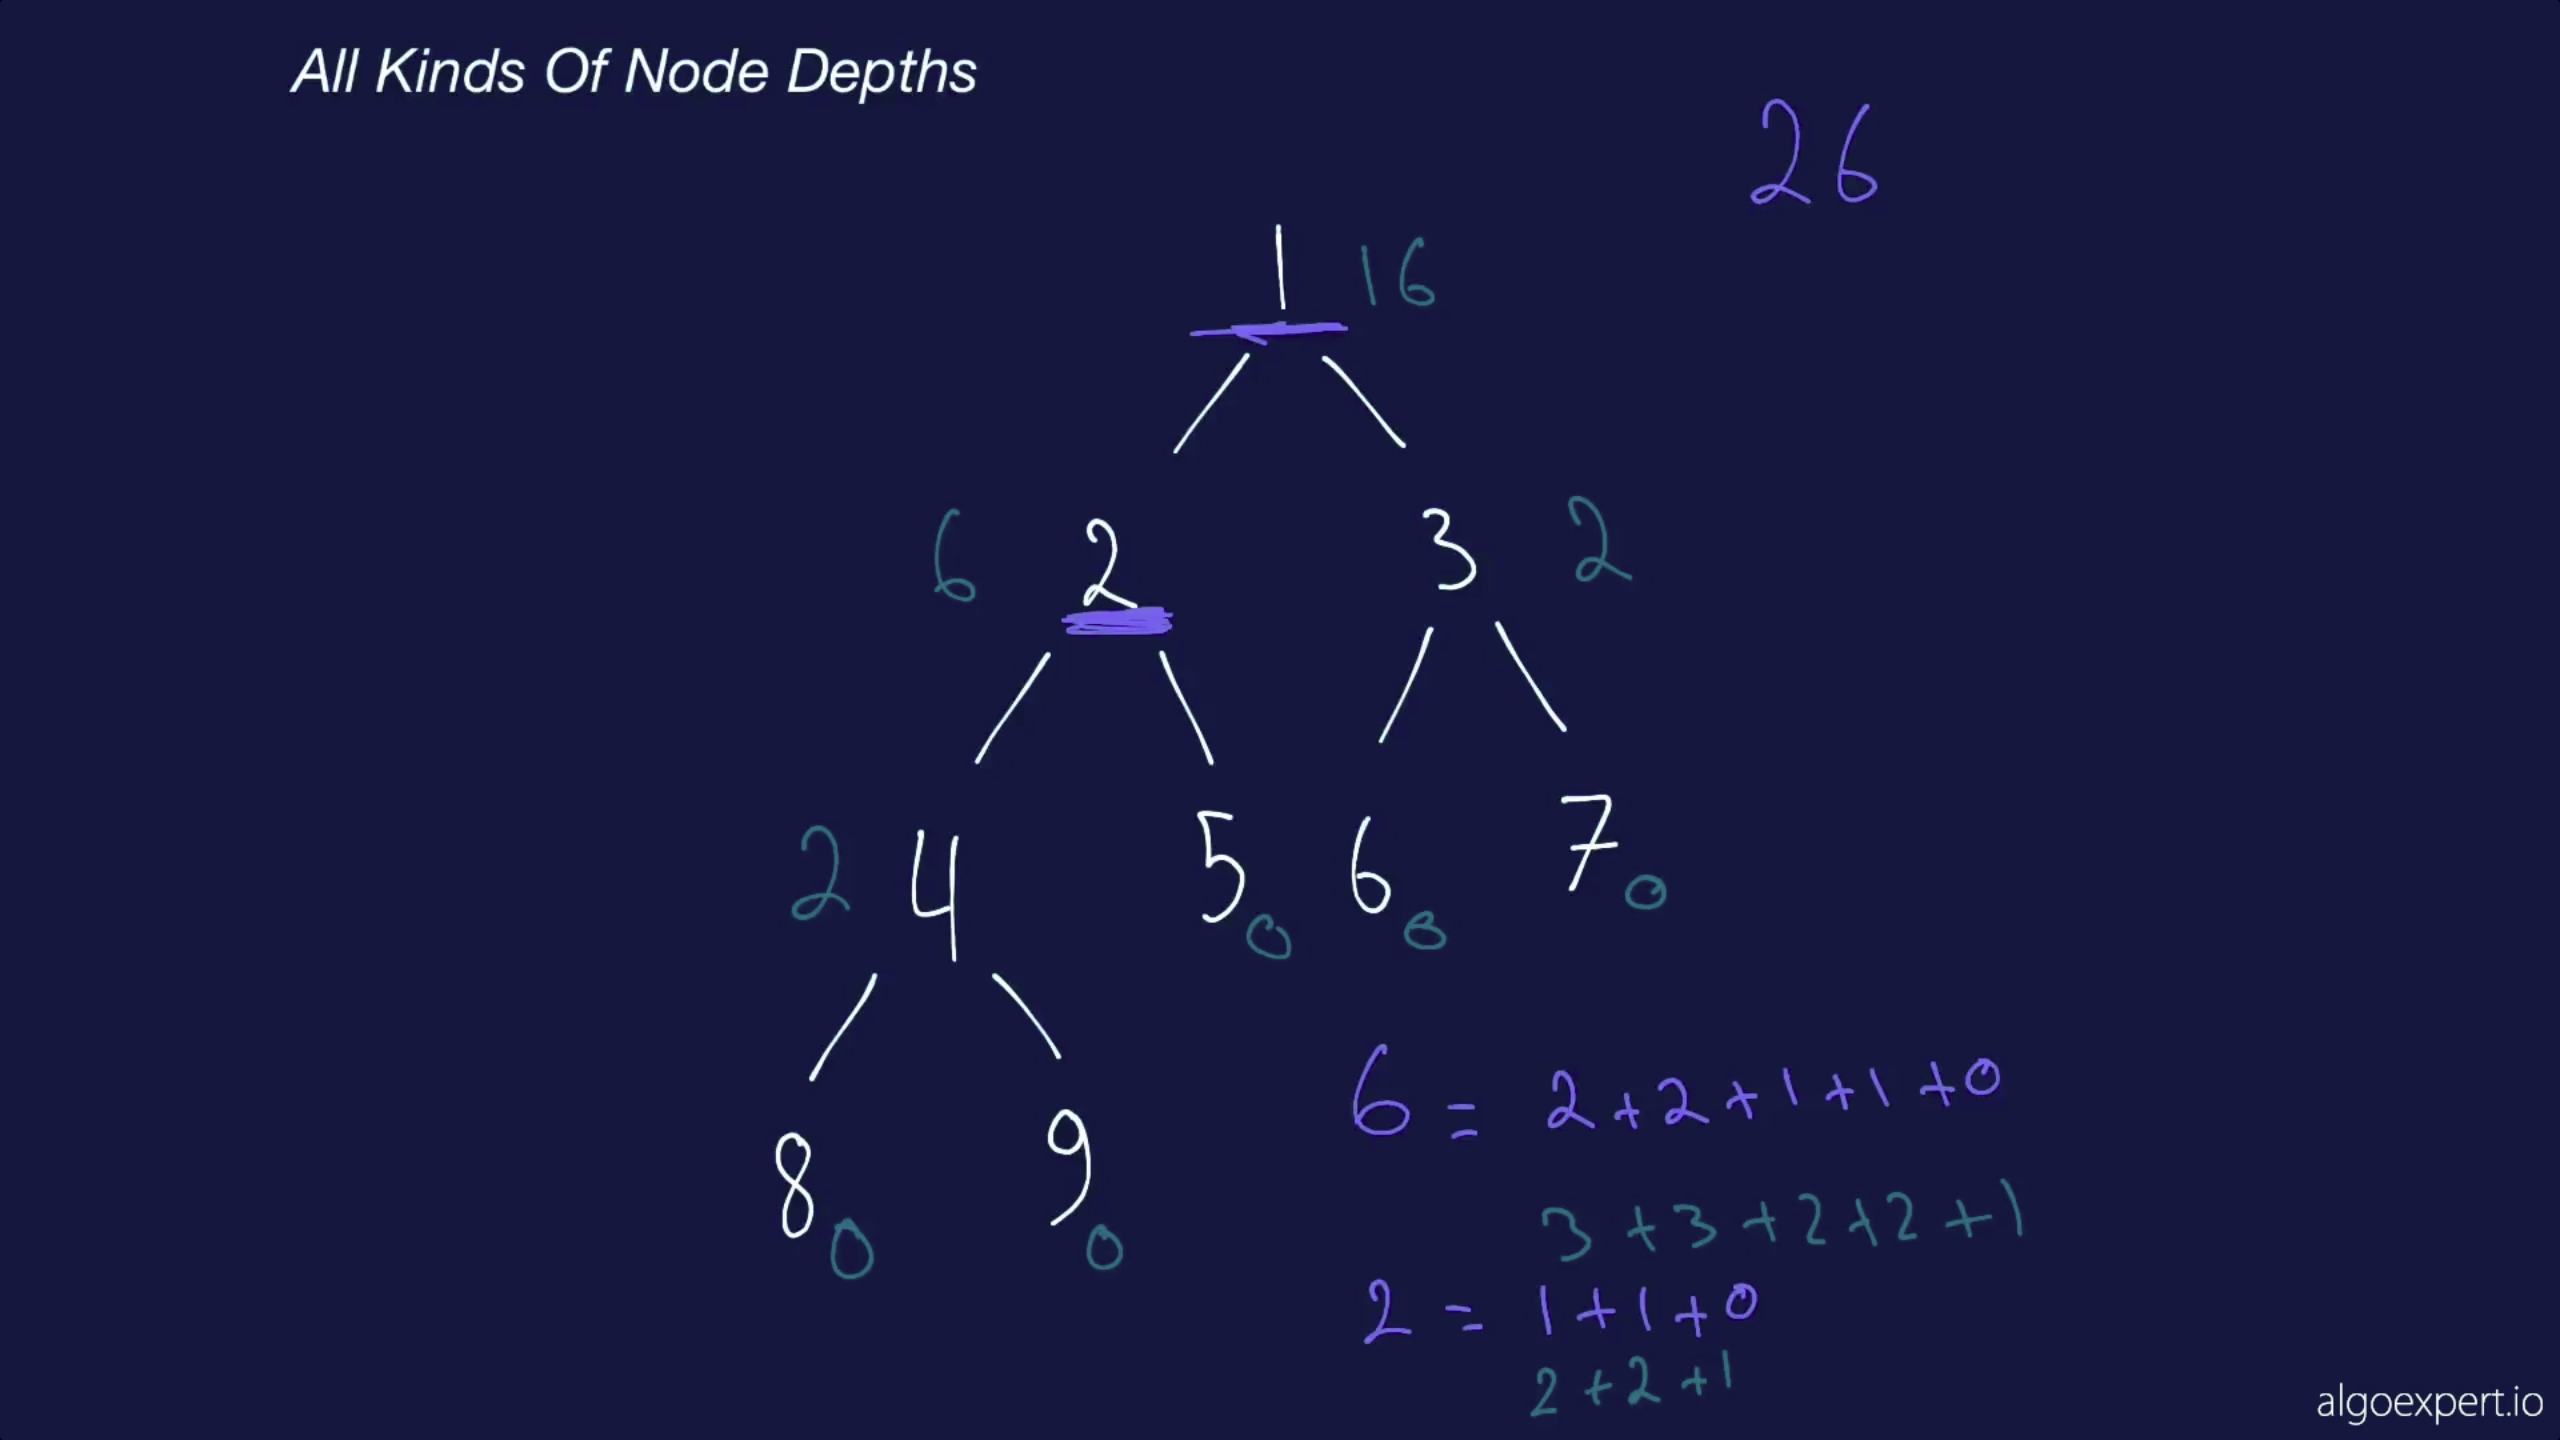 All Kinds Of Node Depths
26
1 16
6 2 3 2
2 4 5 0 6 0 7 0
8 0 9 0
6 = 2+2+1+1+0
3+3+2+2+1
2 = 1+1+0
2+2+1
algoexpert.io